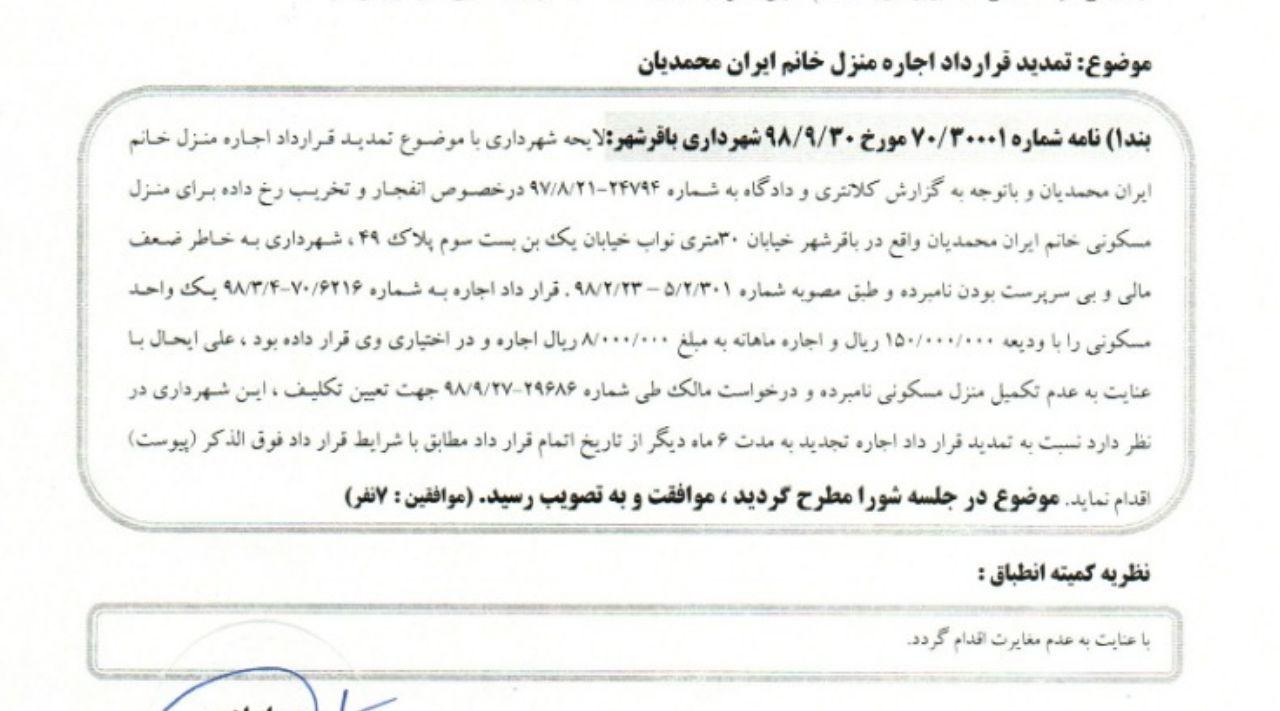 موضوع: تمدید قرارداد اجاره منزل خانم ایران محمدیان
بند۱) نامه شماره ۷۰/۳۰۰۰۱ مورخ ۹۸/۹/۳۰ شهرداری باقرشهر:لایحه شهرداری با موضوع تمدید قرارداد اجاره منزل خانم
ایران محمدیان و باتوجه به گزارش کلانتری و دادگاه به شماره ۲۴۷۹۴-۹۷/۸/۲۱ درخصوص انفجار و تخریب رخ داده برای منزل
مسکونی خانم ایران محمدیان واقع در باقرشهر خیابان ۳۰متری نواب خیابان یک بن بست سوم پلاک ۴۹ ، شهرداری به خاطر ضعف
مالی و بی سرپرست بودن نامبرده و طبق مصوبه شماره ۵/۲/۳۰۱ – ۹۸/۲/۲۳ . قرار داد اجاره به شماره ۷۰/۶۲۱۶-۹۸/۳/۴ یک واحد
مسکونی را با ودیعه ۱۵۰/۰۰۰/۰۰۰ ریال و اجاره ماهانه به مبلغ ۸/۰۰۰/۰۰۰ ریال اجاره و در اختیاری وی قرار داده بود ، علی ایحال با
عنایت به عدم تکمیل منزل مسکونی نامبرده و درخواست مالک طی شماره ۲۹۶۸۶-۹۸/۹/۲۷ جهت تعیین تکلیف ، این شهرداری در
نظر دارد نسبت به تمدید قرار داد اجاره تجدید به مدت ۶ ماه دیگر از تاریخ اتمام قرار داد مطابق با شرایط قرار داد فوق الذکر (پیوست)
اقدام نماید. موضوع در جلسه شورا مطرح گردید ، موافقت و به تصویب رسید. (موافقین : ۷نفر)
نظریه کمیته انطباق :
با عنایت به عدم مغایرت اقدام گردد.